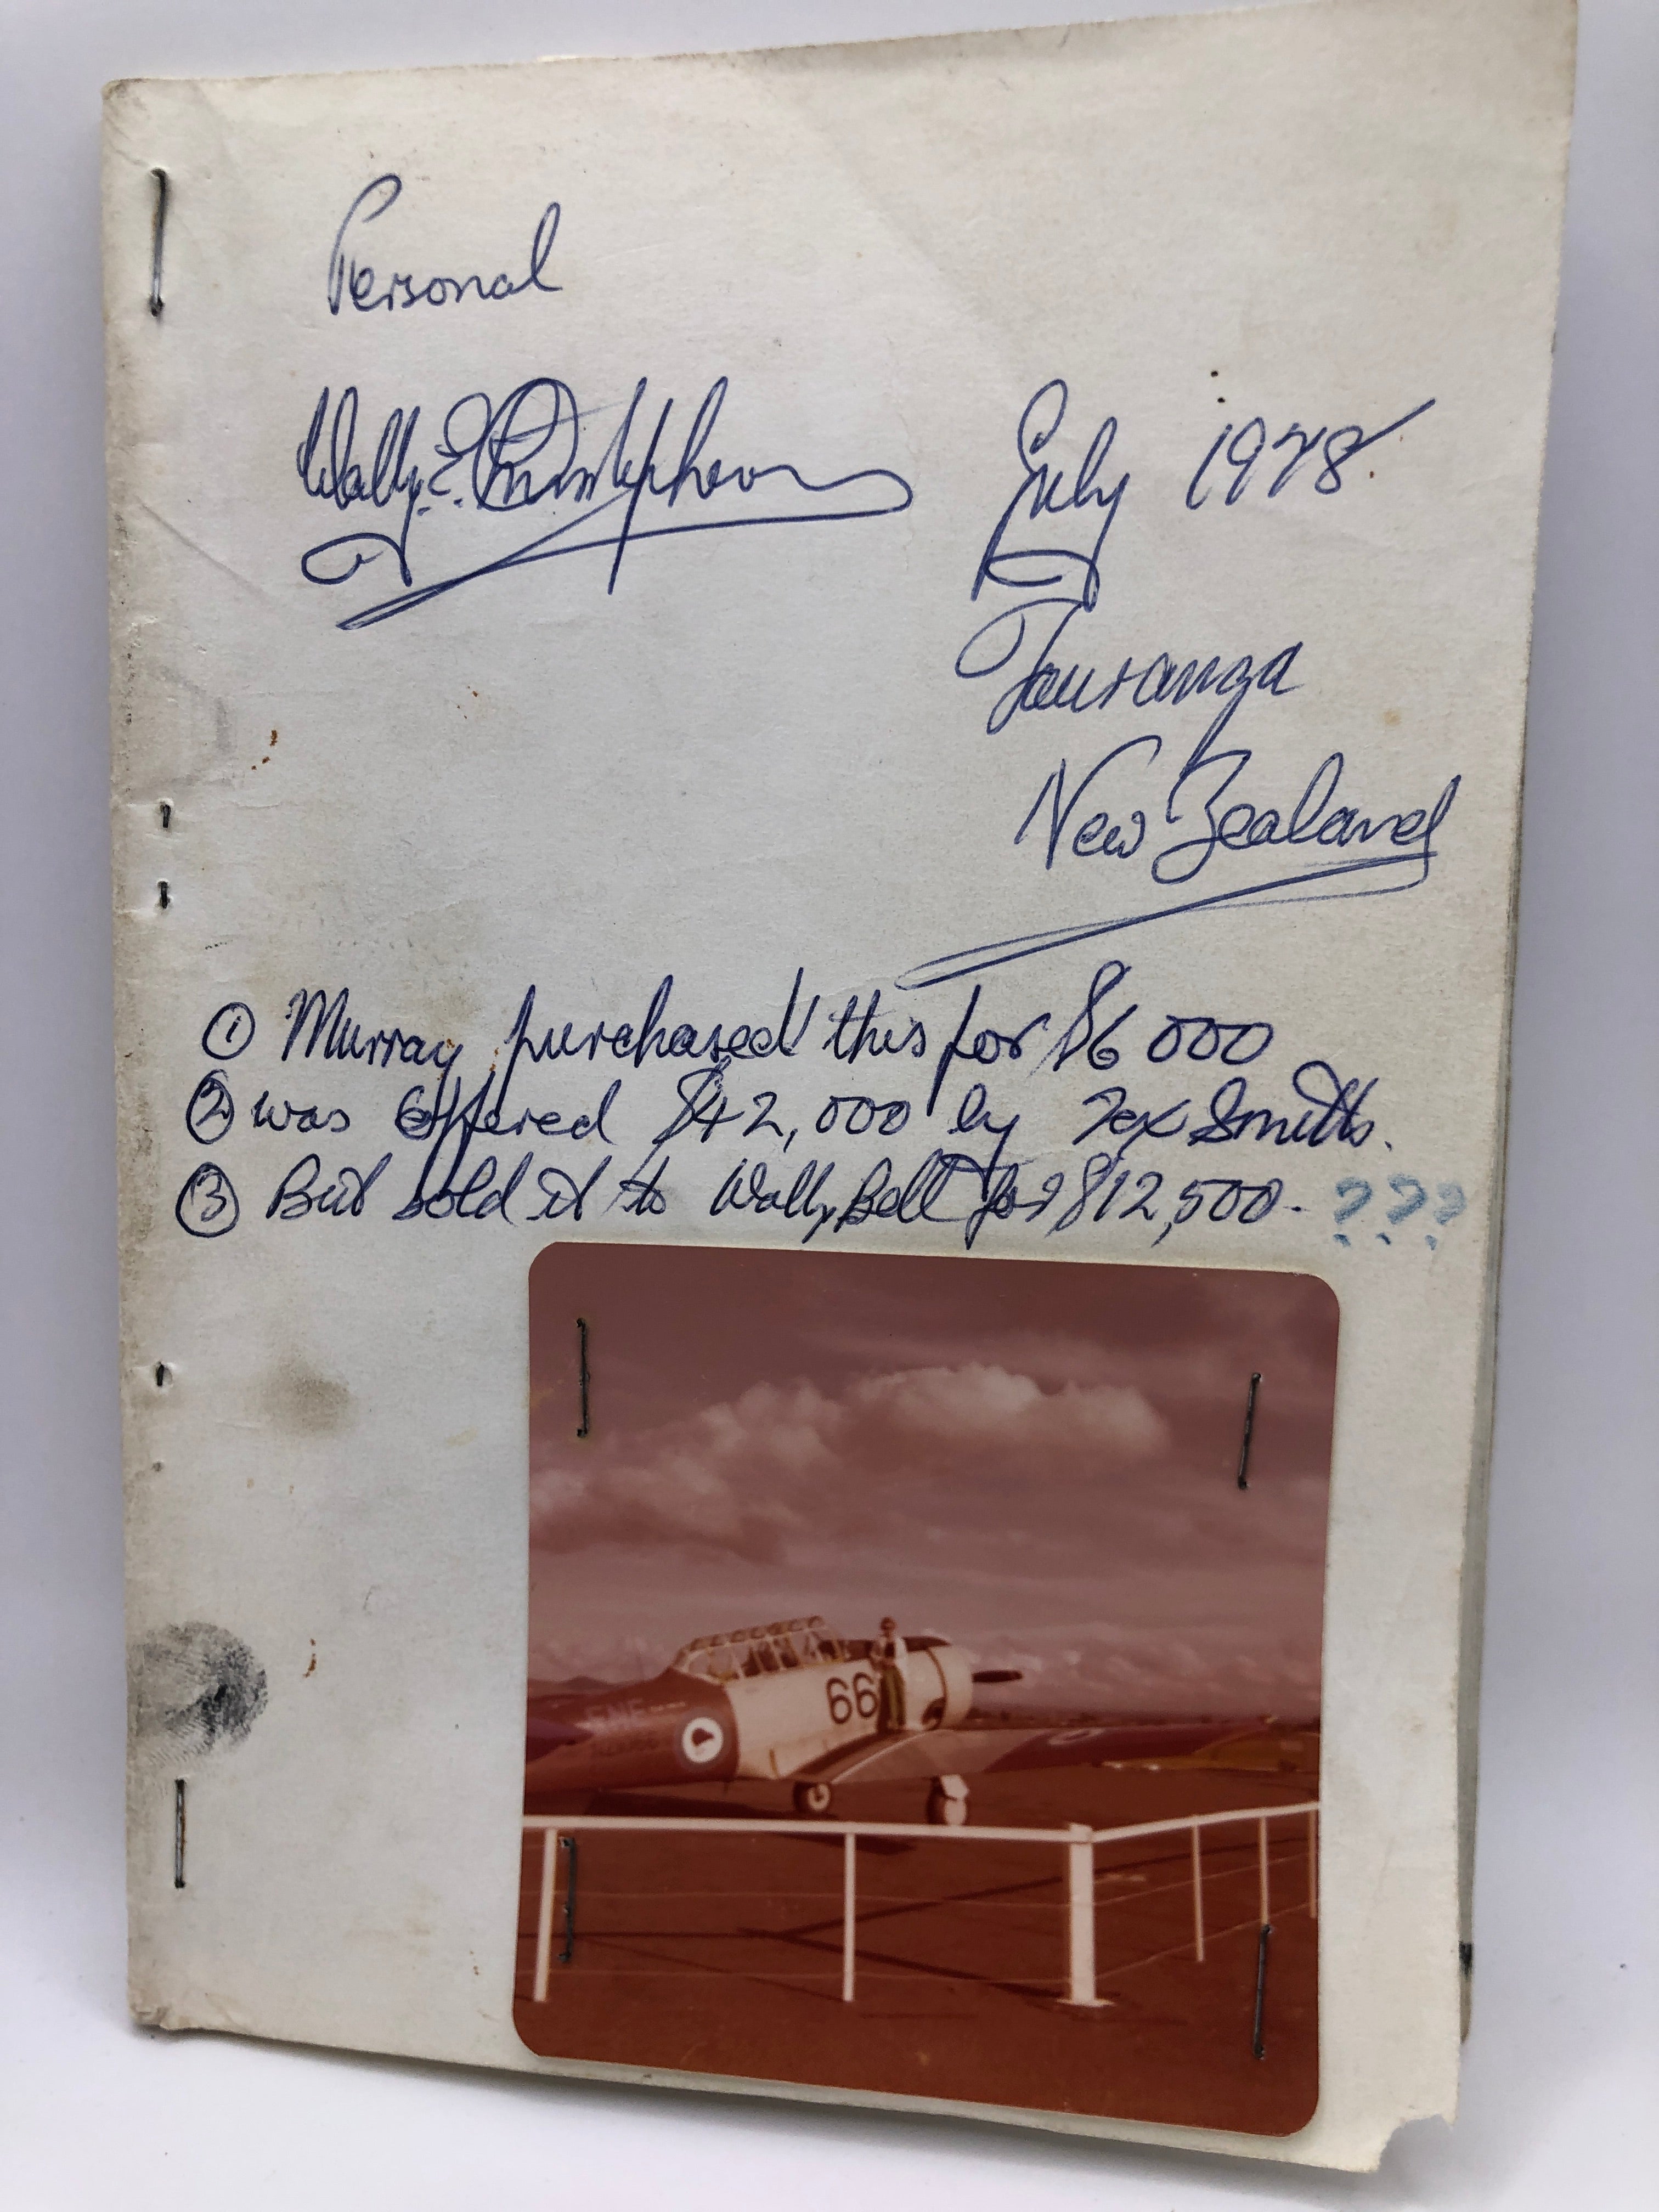 Personal
Wally. E.
July 1978.
Tauranga
New Zealand
① Murray purchased this for $6 000
② was offered $42,000 by Tex Smith.
③ But sold it to Wally Bell for $12,500 - ???
66